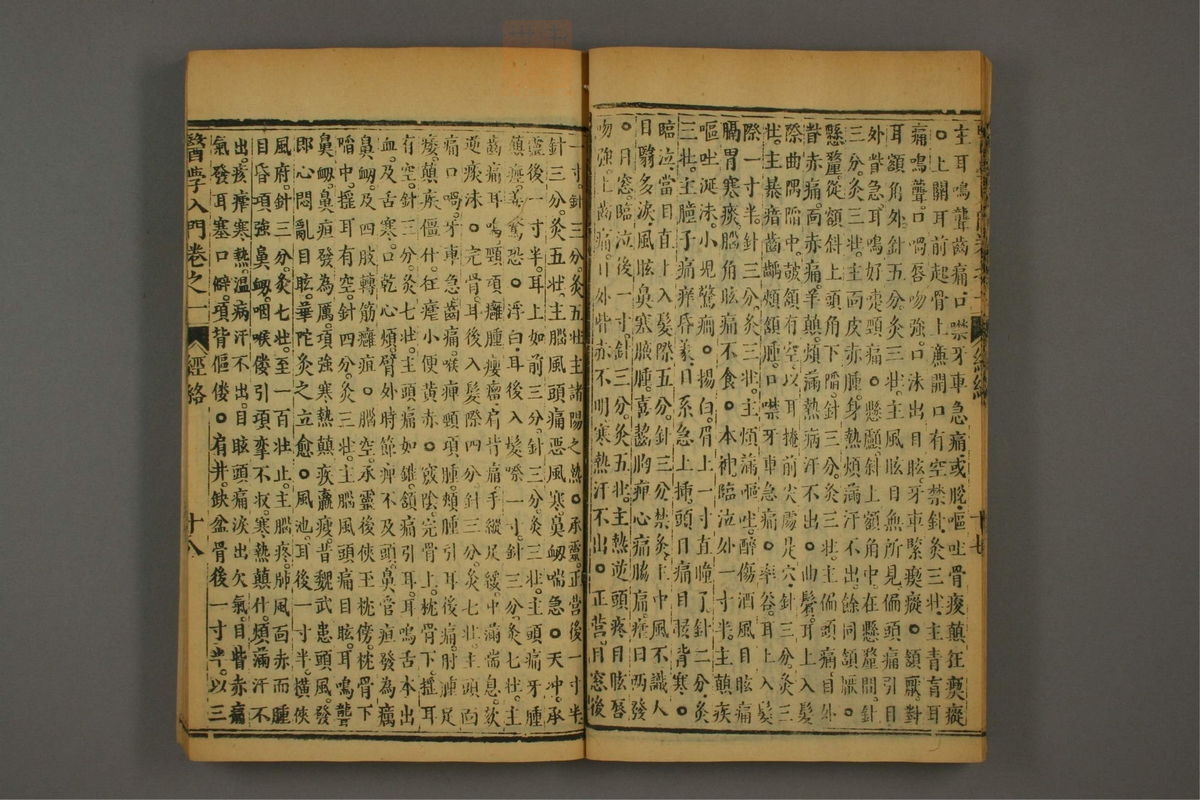 主耳鳴聾齒痛口噤牙車急痛或脫嘔吐骨痠顛狂瘈瘲
○上關耳前起骨上廉開口有空禁針灸三壯主青盲耳
痛鳴聾口喎唇吻強口沫出目眩牙車緊瘈瘲○頷厭對
耳額角外針五分灸三壯主風眩目無所見偏頭痛引目
外眥急耳鳴好嚏頸痛○懸顱斜上額角中在懸釐間針
三分灸三壯主面皮赤腫身熱煩滿汗不出餘同頷厭○
懸釐從額斜上頭角下陷針三分灸三壯主偏頭痛目外
眥赤痛面赤痛羊顛煩滿熱病汗不出○曲鬢耳上入髮
際曲隅陷中鼓頷有空以耳掩前尖處是穴針三分灸三
壯主暴瘖齒齲頰頷腫口噤牙車急痛○率谷耳上入髮
際一寸半針三分灸三壯主煩滿嘔吐醉傷酒風目眩痛
膈胃寒痰腦角眩痛不食○本神臨泣外一寸半主顛疾
嘔吐涎沫小兒驚癇○揚白眉上一寸直瞳子針二分灸
三壯主瞳子痛痒昏蒙目系急上插頭目痛目眵背寒○
臨泣當目直上入髮際五分針三分禁灸主中風不識人
目翳多淚風眩鼻塞腋腫喜齧胸痺心痛脇痛瘧日兩發
○目窓臨泣後一寸針三分灸五壯主熱逆頭疼目眩唇
吻強上齒痛目外眥赤不明寒熱汗不出○正營目窓後
一寸針三分灸五壯主諸陽之熱○承靈正營後一寸半
針三分灸五壯主腦風頭痛惡風寒鼻衂喘急○天冲承
靈後一寸半耳上如前三分針三分灸三壯主頭痛牙腫
顛癇善驚恐○浮白耳後入髮際一寸針三分灸七壯主
齒痛耳鳴頸項癰腫癭瘤肩背痛手縱足緩中滿喘息欬
逆痰沫○完骨耳後入髮際四分針三分灸七壯主頭面
痛口喎牙車急齒痛喉痺頸項腫頰腫引耳後痛肘腫足
痿顛疾僵仆狂瘧小便黃赤○竅陰完骨上枕骨下搖耳
有空針三分灸七壯主頭痛如錐頷痛引耳耳鳴舌本出
血及舌寒口乾心煩臂外肘節痺不及頭
鼻衂及四肢轉筋癰疽○腦空承靈後俠玉枕傍枕骨下
陷中搖耳有空針四分灸三壯主腦風頭痛目眩耳鳴聾
鼻衂鼻疽發為厲項強寒熱顛疾羸瘦昔魏武患頭風發
即心悶亂目眩華陀灸之立愈○風池耳後一寸半橫俠
風府針三分灸七壯至一百壯止主腦疼肺風面赤而腫
目昏項強鼻衂咽喉僂引項攣不收寒熱顛仆煩滿汗不
出痎瘧寒熱溫病汗不出目眩頭痛淚出欠氣目眥赤痛
氣發耳塞口僻項背傴僂○肩井缺盆骨後一寸半以三
醫學入門卷之一 經絡 十八